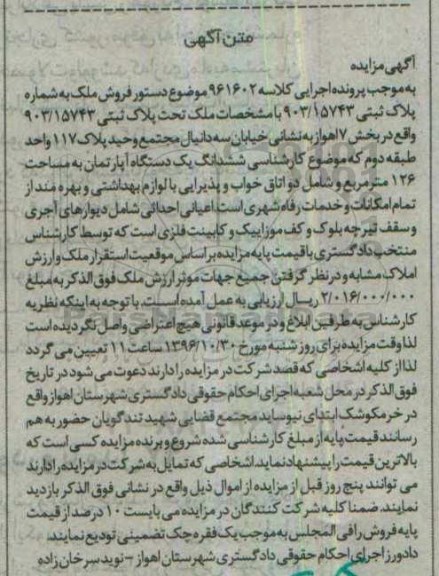 متن آگهی
آگهی مزایده
به موجب پرونده اجرایی کلاسه ۹۶۱۶۰۲ موضوع دستور فروش ملک به شماره
پلاک ثبتی ۹۰۳/۱۵۷۴۳ با مشخصات ملک تحت پلاک ثبتی ۹۰۳/۱۵۷۴۳
واقع در بخش ۷ اهواز به نشانی خیابان سه دانیال مجتمع وحید پلاک ۱۱۷ واحد
طبقه دوم که موضوع کارشناسی ششدانگ یک دستگاه آپارتمان به مساحت
۱۲۶ مترمربع و شامل دو اتاق خواب و پذیرایی با لوازم بهداشتی و بهره مند از
تمام امکانات و خدمات رفاه شهری است اعیانی احداثی شامل دیوارهای آجری
و سقف تیرچه بلوک و کف موزاییک و کابینت فلزی است که توسط کارشناس
منتخب دادگستری با قیمت پایه مزایده بر اساس موقعیت استقرار ملک و ارزش
املاک مشابه و در نظر گرفتن جمیع جهات موثر ارزش ملک فوق الذکر به مبلغ
۲/۰۱۶/۰۰۰/۰۰۰ ریال ارزیابی به عمل آمده است. با توجه به اینکه نظریه
کارشناس به طرفین ابلاغ و در موعد قانونی هیچ اعتراضی واصل نگردیده است
لذا وقت مزایده برای روز شنبه مورخ ۱۳۹۶/۱۰/۳۰ ساعت ۱۱ تعیین می گردد
لذا از کلیه اشخاصی که قصد شرکت در مزایده را دارند دعوت می شود در تاریخ
فوق الذکر در محل شعبه اجرای احکام حقوقی دادگستری شهرستان اهواز واقع
در خرمکوشک ابتدای نیوساید مجتمع قضایی شهید تندگویان حضور به هم
رسانند قیمت پایه از مبلغ کارشناسی شده شروع و برنده مزایده کسی است که
بالاترین قیمت را پیشنهاد نماید اشخاصی که تمایل به شرکت در مزایده را دارند
می توانند پنج روز قبل از مزایده از اموال ذیل واقع در نشانی فوق الذکر بازدید
نمایند. ضمنا کلیه شرکت کنندگان در مزایده می بایست ۱۰ درصد از قیمت
پایه فروش را فی المجلس به موجب یک فقره چک تضمینی تودیع نمایند.
دادورز اجرای احکام حقوقی دادگستری شهرستان اهواز - نوید سرخان زاده
ParsNamadData